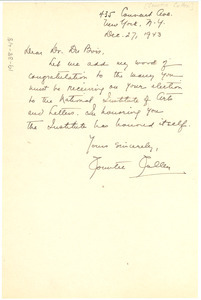 435 Convent Ave.
New York, N.Y.
Dec. 27, 1943
Dear Dr. Du Bois,
Let me add my word of
congratulation to the many you
must be receiving on your election
to the National Institute of Arts
and Letters. In honoring you
the Institute has honored itself.
Yours sincerely,
Countee Cullen